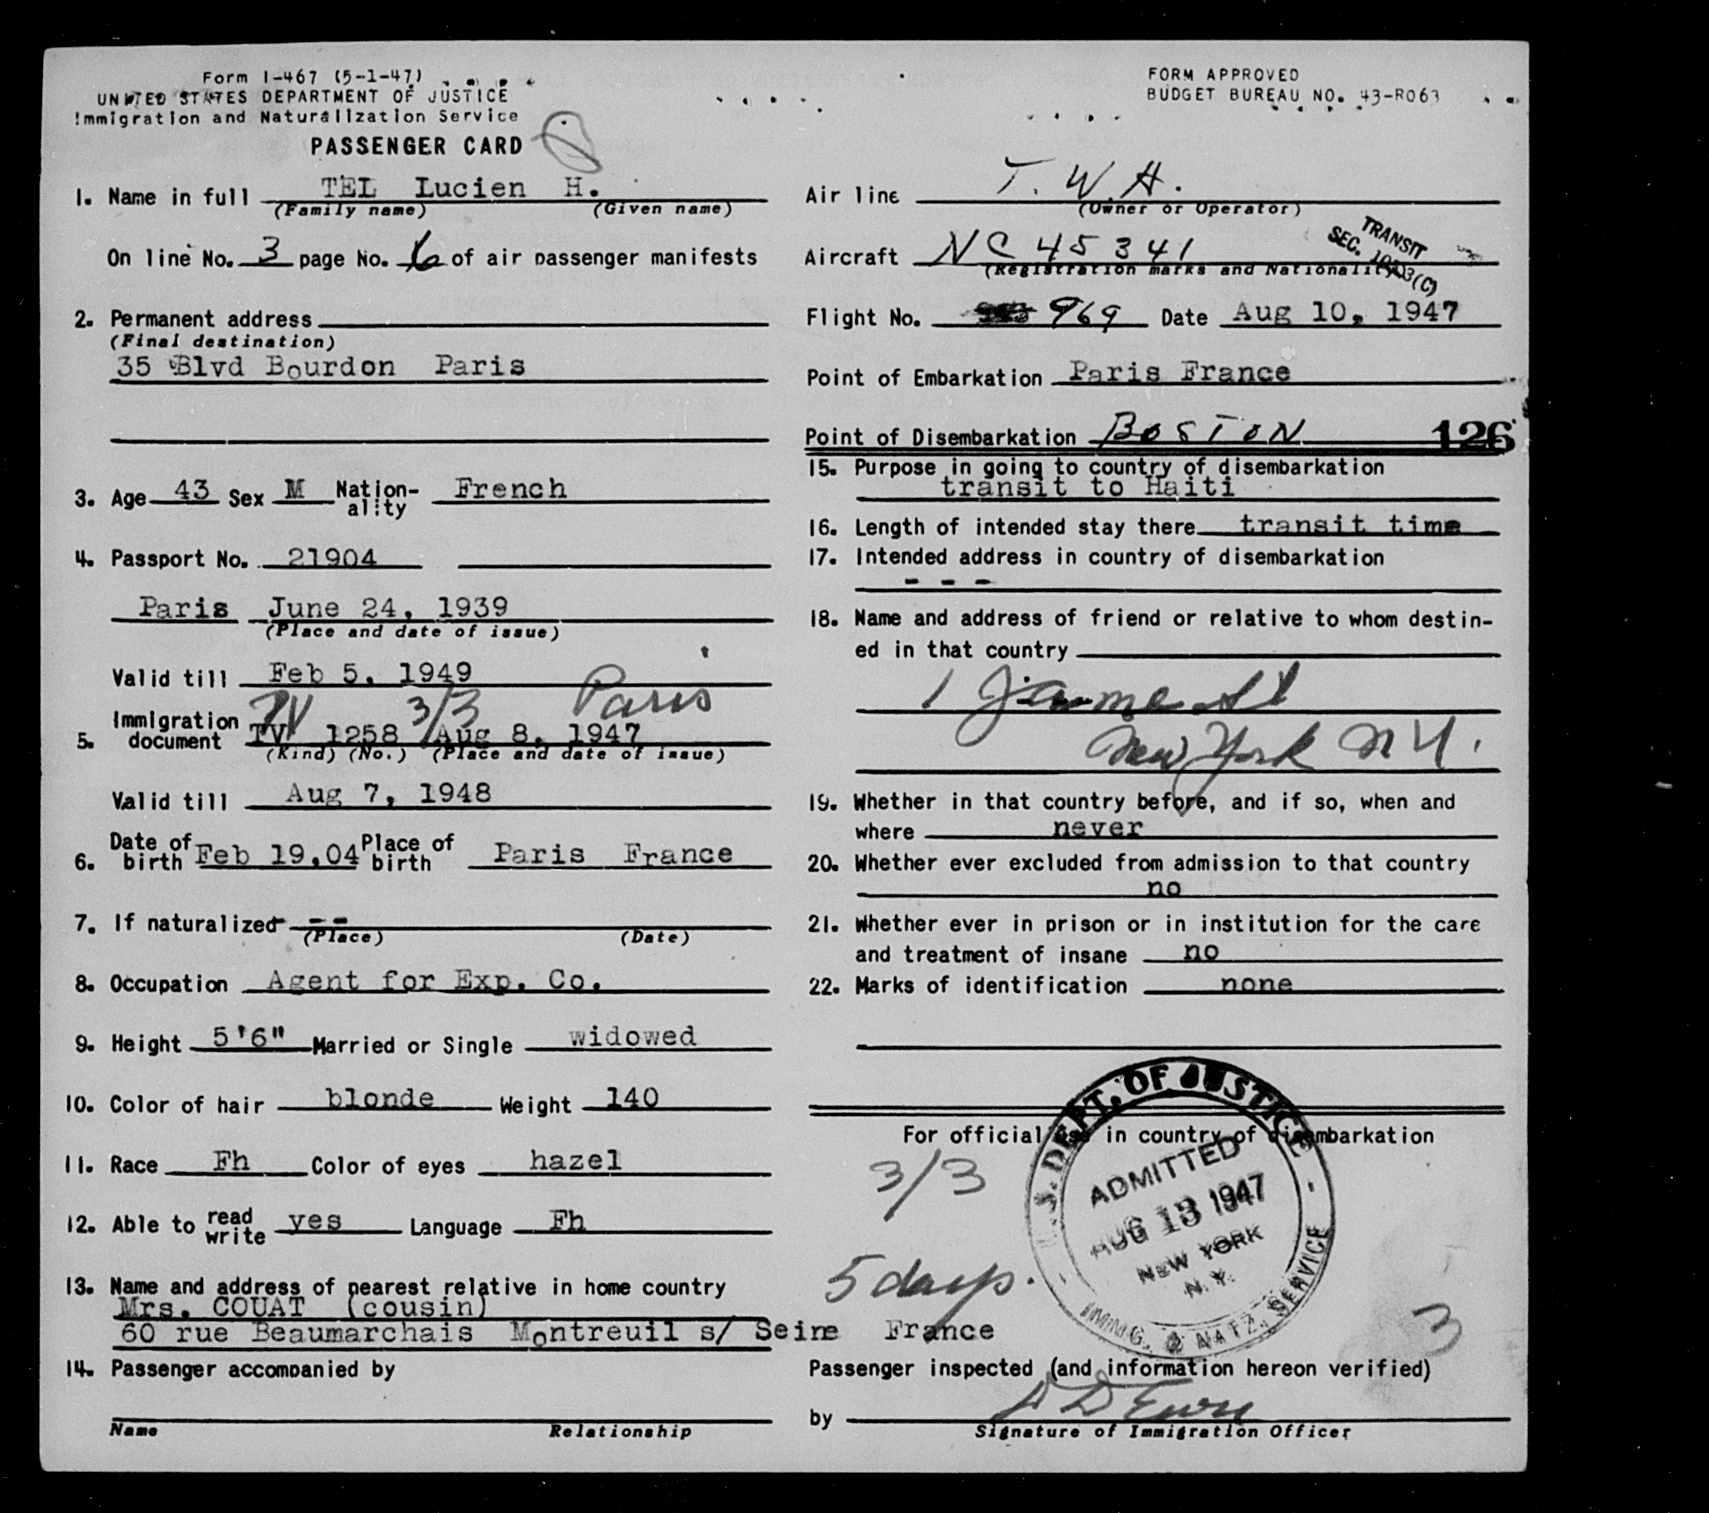 Form I-467 (5-1-47)
UNITED STATES DEPARTMENT OF JUSTICE
Immigration and Naturalization Service
PASSENGER CARD
FORM APPROVED
BUDGET BUREAU NO. 43-R063
1. Name in full TEL Lucien H.
(Family name) (Given name)
On line No. 3 page No. 6 of air passenger manifests
2. Permanent address
(Final destination)
35 Blvd Bourdon Paris
3. Age 43 Sex M Nation-ality French
4. Passport No. 21904
Paris June 24, 1939
(Place and date of issue)
Valid till Feb 5, 1949
TV 3/3 Paris
5. Immigration document TV 1258 Aug 8, 1947
(Kind) (No.) (Place and date of issue)
Valid till Aug 7, 1948
6. Date of birth Feb 19,04 Place of birth Paris France
7. If naturalized --
(Place) (Date)
8. Occupation Agent for Exp. Co.
9. Height 5'6" Married or Single widowed
10. Color of hair blonde Weight 140
11. Race Fh Color of eyes hazel
12. Able to read write yes Language Fh
13. Name and address of nearest relative in home country
Mrs. COUAT (cousin)
60 rue Beaumarchais Montreuil s/ Seine France
14. Passenger accompanied by
Name Relationship
Air line T. W. A.
(Owner or Operator)
TRANSIT
SEC.
Aircraft NC 45341
(Registration marks and Nationality)
Flight No. 969 Date Aug 10, 1947
Point of Embarkation Paris France
Point of Disembarkation BOSTON 126
15. Purpose in going to country of disembarkation
transit to Haiti
16. Length of intended stay there transit time
17. Intended address in country of disembarkation
- - -
18. Name and address of friend or relative to whom destin-
ed in that country
1 St
New York N Y.
19. Whether in that country before, and if so, when and
where never
20. Whether ever excluded from admission to that country
no
21. Whether ever in prison or in institution for the care
and treatment of insane no
22. Marks of identification none
For official use in country of disembarkation
3/3
5 days.
U.S. DEPT. OF JUSTICE
ADMITTED
AUG 13 1947
NEW YORK
N.Y.
IMMG. & NATZ. SERVICE
3
Passenger inspected (and information hereon verified)
by
Signature of Immigration Officer